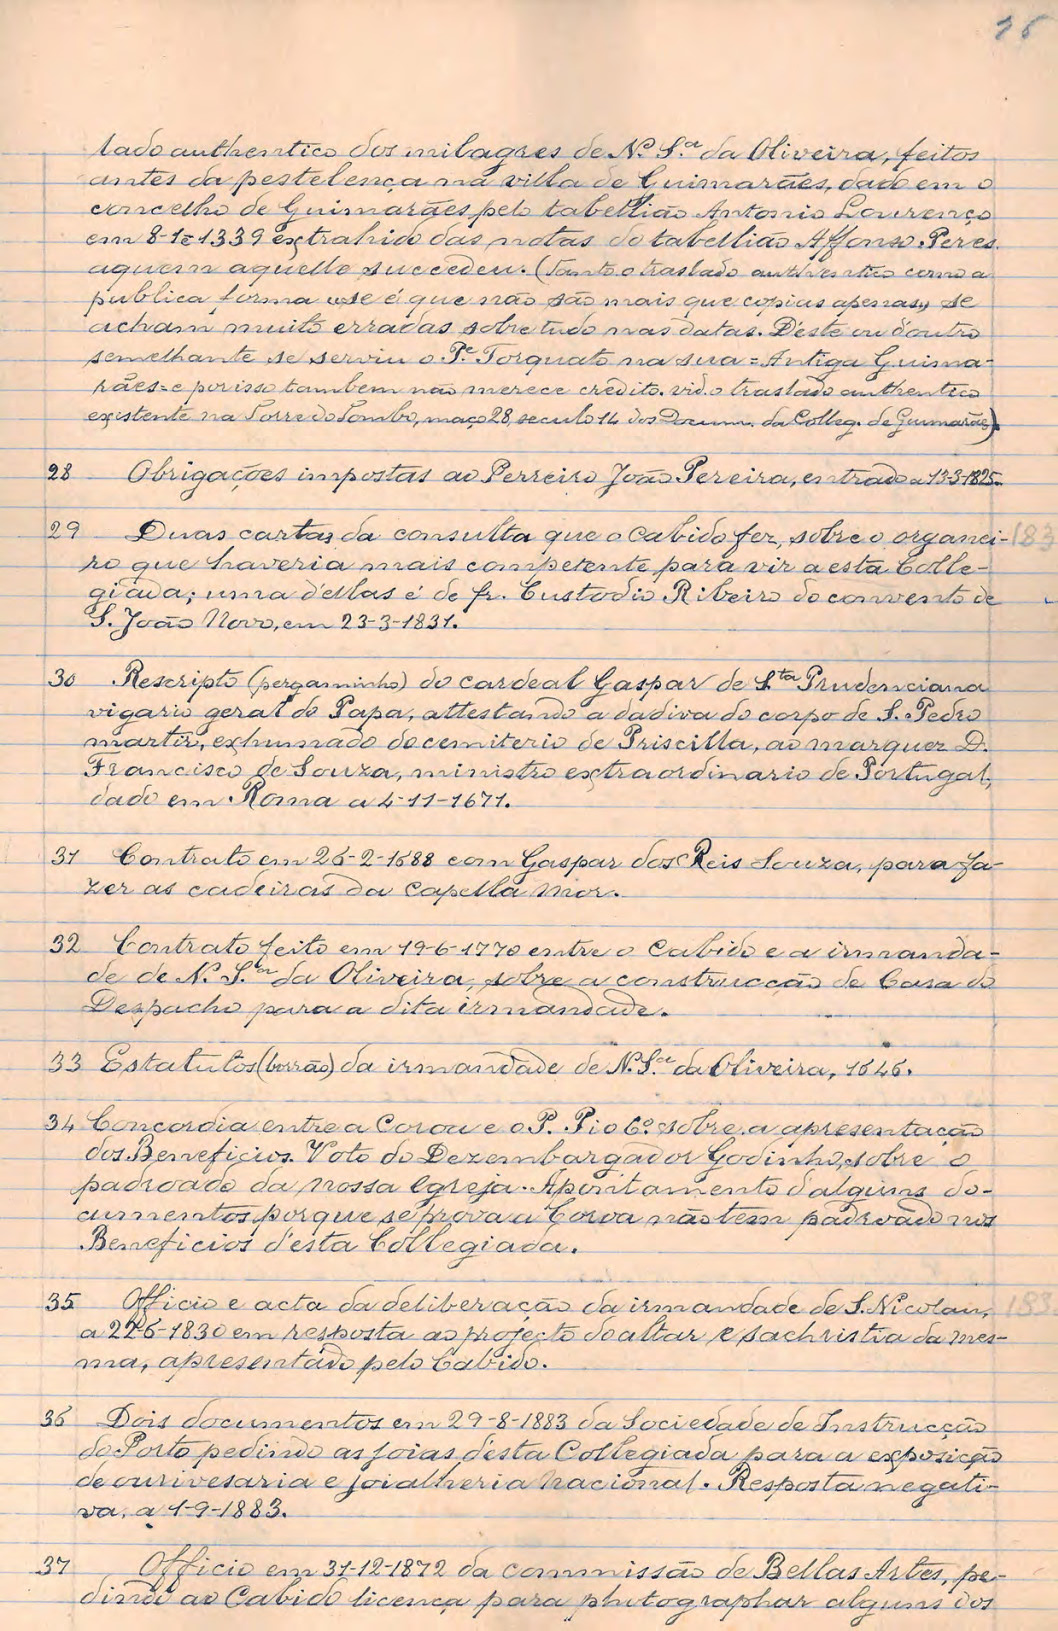 26
lado authentico dos milagres de N.ª S.ra da Oliveira, feitos
antes da pestelença na villa de Guimarães, dado em o
concelho de Guimarães pelo tabellião Antonio Lourenço
em 8-1º-1339 extrahido das notas do tabellião Affonso Peres.
a quem aquello succedeu. (Tanto o traslado authentico como a
publica forma use é que não são mais que copias apenas,, se
acham muito erradas sobre tudo nas datas. D'este ou d'outro
semelhante se serviu o P.e Torquato na sua = Antiga Guima-
rães = e por isso tambem não merece credito. vid. o traslado authentico
existente na Torre do Tombo, maço 28, seculo 14 dos Docum. da Colleg. de Guimarães).
28 Obrigações impostas ao Perreiro João Pereira, entrado a 13-3-1825.
29 Duas cartas da consulta que o Cabido fez, sobre o organei-
ro que haveria mais competente para vir a esta Colle-
giada; uma d'ellas é de fr. Custodio Ribeiro do convento de
S. João Novo, em 23-3-1831.
30 Rescripto (pergaminho) do cardeal Gaspar de S.ta Prudenciana
vigario geral do Papa, attestando a dadiva do corpo de S. Pedro
martir, exhumado do cemiterio de Priscilla, ao marquez D.
Francisco de Souza, ministro extraordinario de Portugal,
dado em Roma a 4-11-1671.
31 Contrato em 26-2-1688 com Gaspar dos Reis Souza, para fa-
zer as cadeiras da capella mor.
32 Contrato feito em 19-6-1770 entre o Cabido e a irmanda-
de de N. S.ra da Oliveira, sobre a construcção de Casa do
Despacho para a dita irmandade.
33 Estatutos (borrão) da irmandade de N. S.ra da Oliveira, 1646.
34 Concordia entre a Coroa e o P. Pio 6º sobre a apresentação
dos Beneficios. Voto do Dezembargador Godinho, sobre o
padroado da nossa Egreja. Apontamento d'alguns do-
cumentos, porque se prova a Coroa não tem padroado nos
Beneficios d'esta Collegiada.
35 Officio e acta da deliberação da irmandade de S. Nicolau,
a 22-6-1830 em resposta ao projecto do altar e sachristia da mes-
ma, apresentado pelo Cabido.
36 Dois documentos em 29-8-1883 da Sociedade de Instrucção
do Porto pedindo as joias d'esta Collegiada para a exposição
de ourivesaria e joialheria nacional. Resposta negati-
va, a 1-9-1883.
37 Officio em 31-12-1872 da commissão de Bellas Artes, pe-
dindo ao Cabido licença para photographar alguns dos